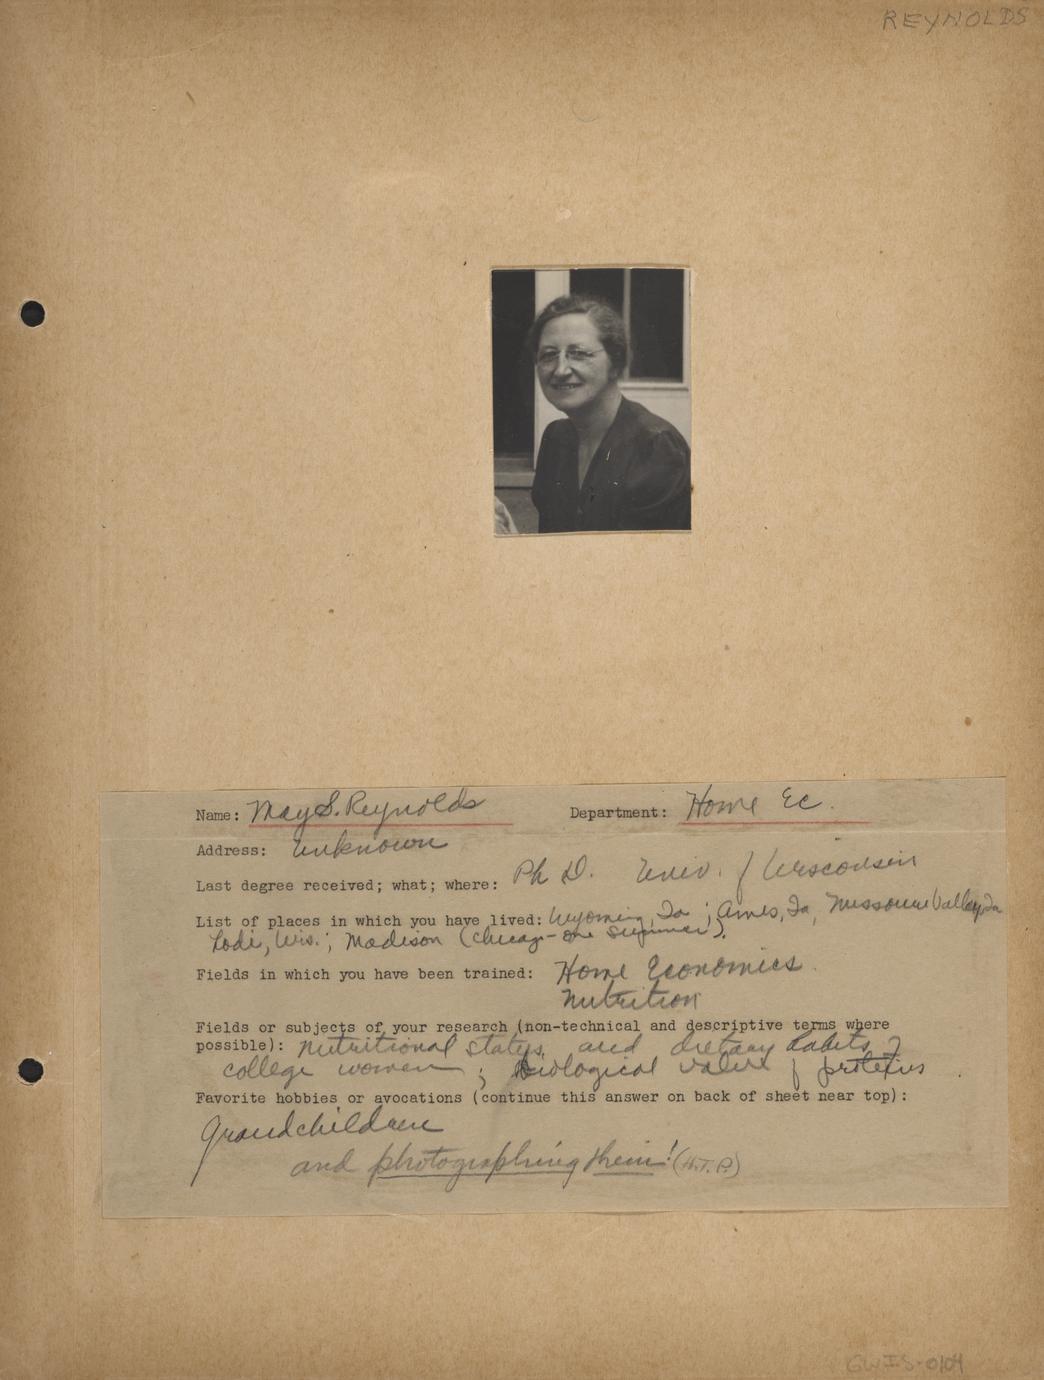 REYNOLDS
Name: May S. Reynolds Department: Home Ec.
Address: Unknown
Last degree received; what; where: Ph D. Univ. of Wisconsin
List of places in which you have lived: Wyoming, Ia; Ames, Ia, Missouri Valley, Ia
Lodi, Wis.; Madison (Chicago - one summer).
Fields in which you have been trained: Home Economics.
Nutrition
Fields or subjects of your research (non-technical and descriptive terms where
possible): nutritional status and dietary habits of
college women; biological value of proteins.
Favorite hobbies or avocations (continue this answer on back of sheet near top):
Grandchildren
and photographing them! (H.T.P.)
GWIS-0104